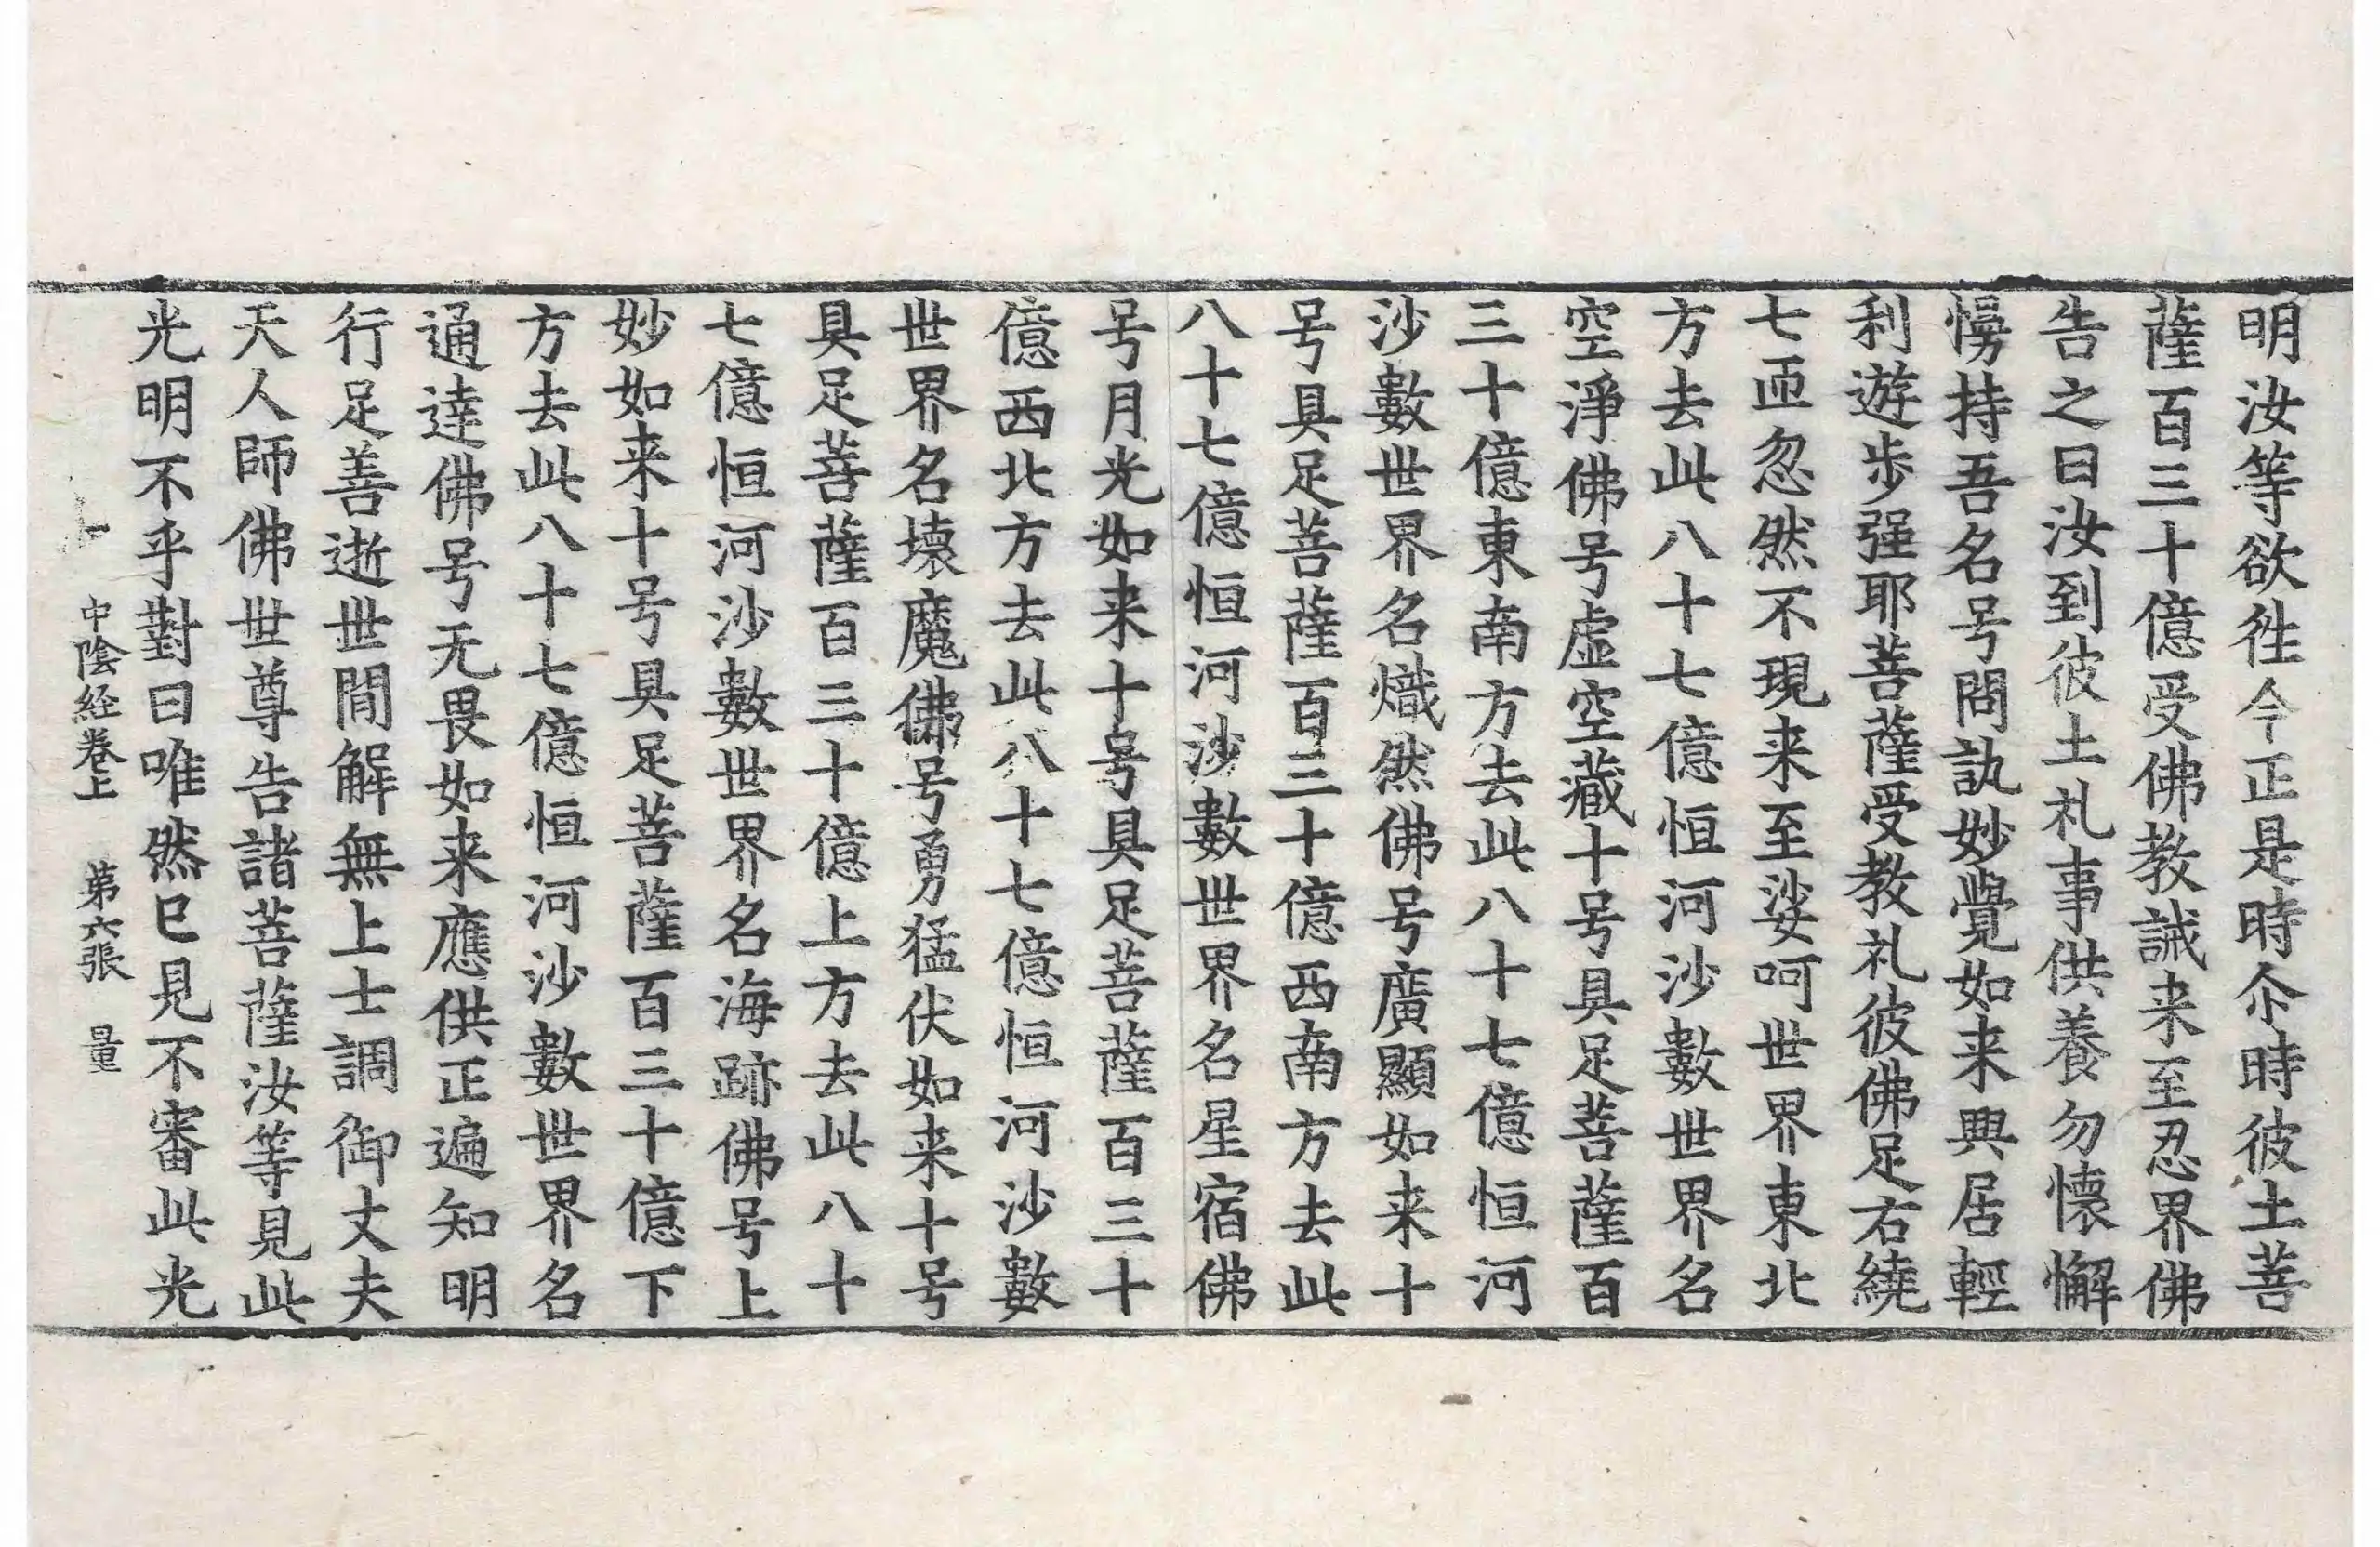 明汝等欲徃今正是時尒時彼土菩
薩百三十億受佛教誡来至忍界佛
告之曰汝到彼土礼事供養勿懷懈
慢持吾名号問訊妙覺如来興居輕
利遊歩强耶菩薩受教礼彼佛足右繞
七帀忽然不現来至娑呵世界東北
方去此八十七億恒河沙數世界名
空淨佛号虚空藏十号具足菩薩百
三十億東南方去此八十七億恒河
沙數世界名熾然佛号廣顯如来十
号具足菩薩百三十億西南方去此
八十七億恒河沙數世界名星宿佛
号月光如来十号具足菩薩百三十
億西北方去此八十七億恒河沙數
世界名壊魔佛号勇猛伏如来十号
具足菩薩百三十億上方去此八十
七億恒河沙數世界名海跡佛号上
妙如来十号具足菩薩百三十億下
方去此八十七億恒河沙數世界名
通達佛号无畏如来應供正遍知明
行足善逝世間解無上士調御丈夫
天人師佛世尊告諸菩薩汝等見此
光明不乎對曰唯然已見不審此光
中陰経卷上 第六張 量